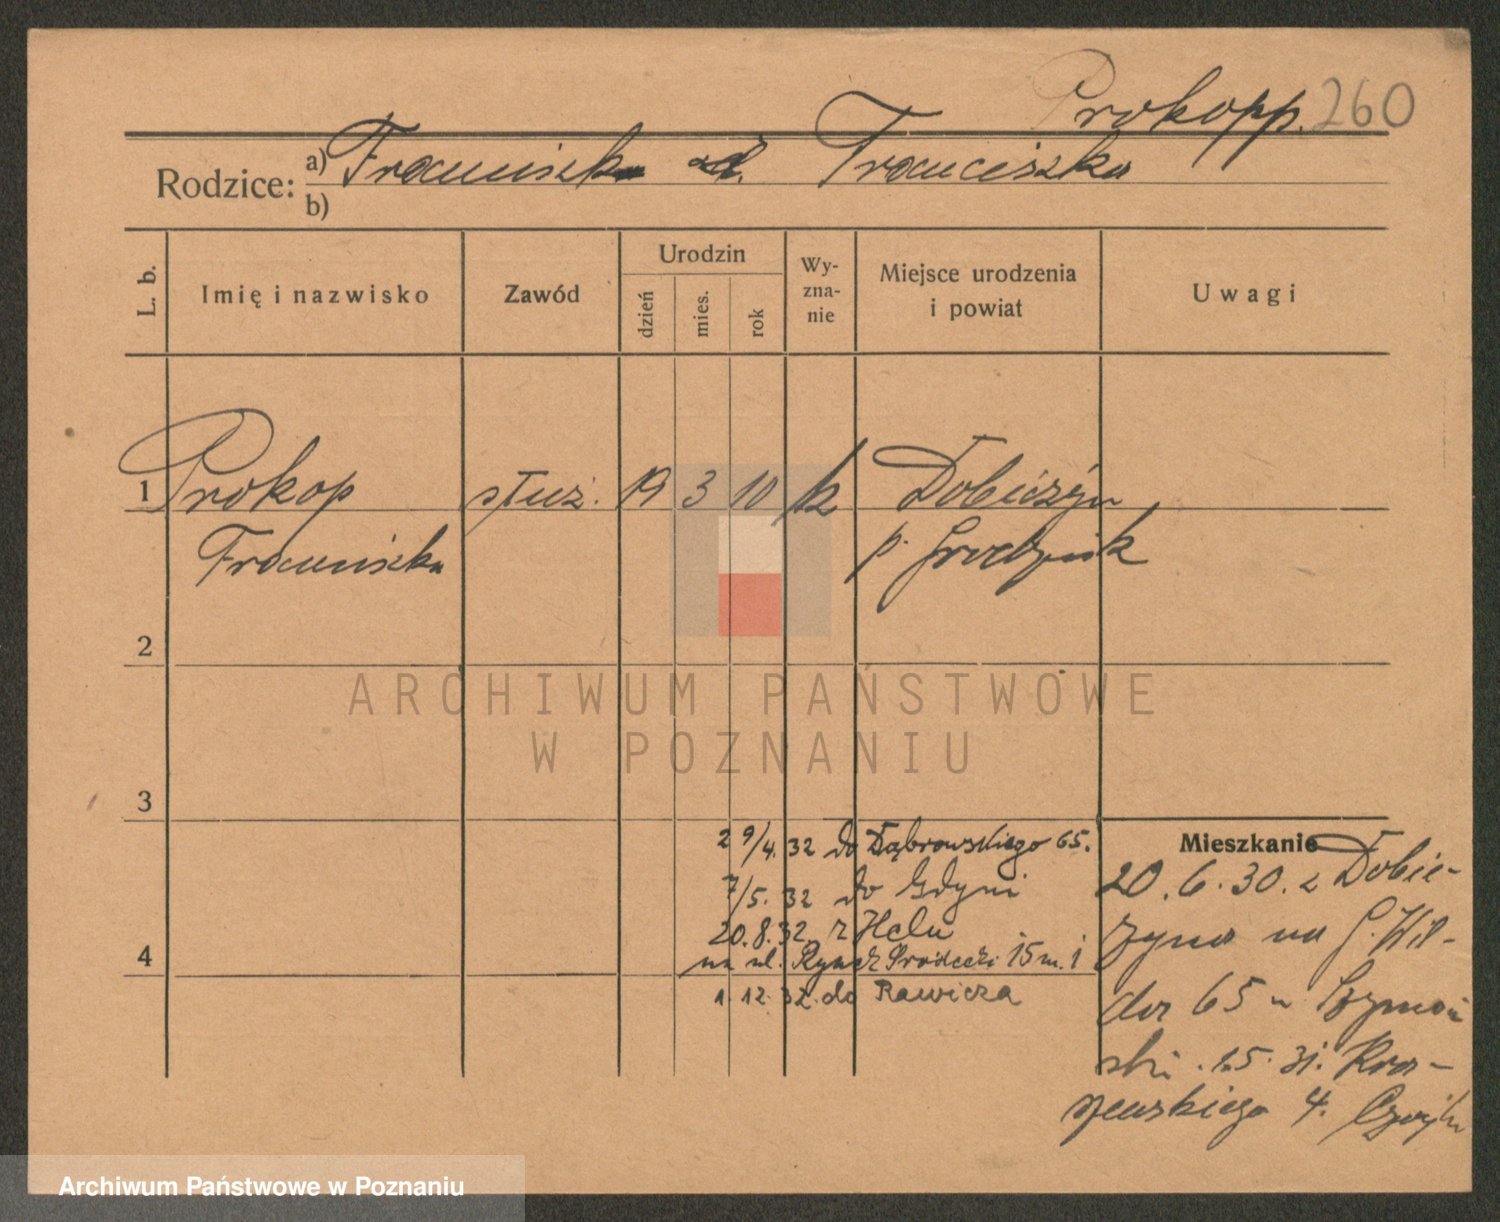 Prokopp. 260
Rodzice: a) Franciszka Franciszka
b)
L. b.
Imię i nazwisko
Zawód
Urodzin
dzień
mies.
rok
Wy-
zna-
nie
Miejsce urodzenia
i powiat
Uwagi
1 Prokop służ. 19 3 10 k Dobieżyn
Franciszka p. Grodzisk
2
3
4
2 9/4. 32 do Dąbrowskiego 65.
7/5. 32 do Gdyni
20.8.32. z Helu
na ul. Rynek Śródecki 15 m. 1
1. 12. 32. do Rawicza
Mieszkanie
20. 6. 30. z Dobie-
żyna na G. Wil-
da 65 u Szymań
ski. 1.5. 31. Kra-
szewskiego 4.
ARCHIWUM PAŃSTWOWE
W POZNANIU
Archiwum Państwowe w Poznaniu